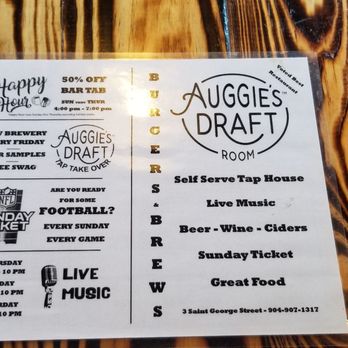 Happy
Hour
50% OFF
BAR TAB
SUN thru THUR
4:00 pm - 7:00 pm
BREWERY
FRIDAY
SAMPLES
SWAG
AUGGIE'S
DRAFT
TAP TAKE OVER
NFL
SUNDAY
TICKET
ARE YOU READY
FOR SOME
FOOTBALL?
EVERY SUNDAY
EVERY GAME
10 PM
10 PM
10 PM
LIVE
MUSIC
BURGERS & BREWS
Voted Best
Restaurant
AUGGIE'S
DRAFT
ROOM
Self Serve Tap House
Live Music
Beer - Wine - Ciders
Sunday Ticket
Great Food
3 Saint George Street - 904-907-1317